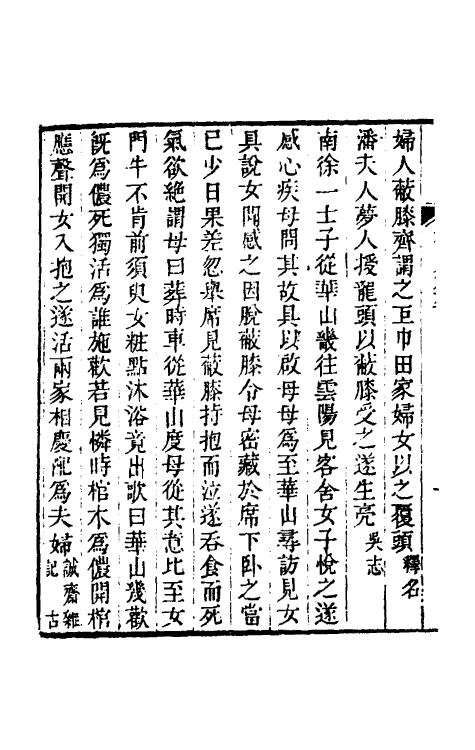 婦人蔽膝齊謂之巨巾田家婦女以之覆頭釋名
潘夫人夢人授龍頭以蔽膝受之遂生亮吳志
南徐一士子從華山畿往雲陽見客舍女子悅之遂
感心疾母問其故具以啟母母為至華山尋訪見女
具說女聞感之因脫蔽膝令母密藏於席下臥之當
已少日果差忽舉席見蔽膝持抱而泣遂吞食而死
氣欲絕謂母曰葬時車從華山度母從其意比至女
門牛不肯前須臾女粧點沐浴竟出歌曰華山幾歡
既為儂死獨活為誰施歡若見憐時棺木為儂開棺
應聲開女入抱之遂活兩家相慶配為夫婦誠齋雜記 古